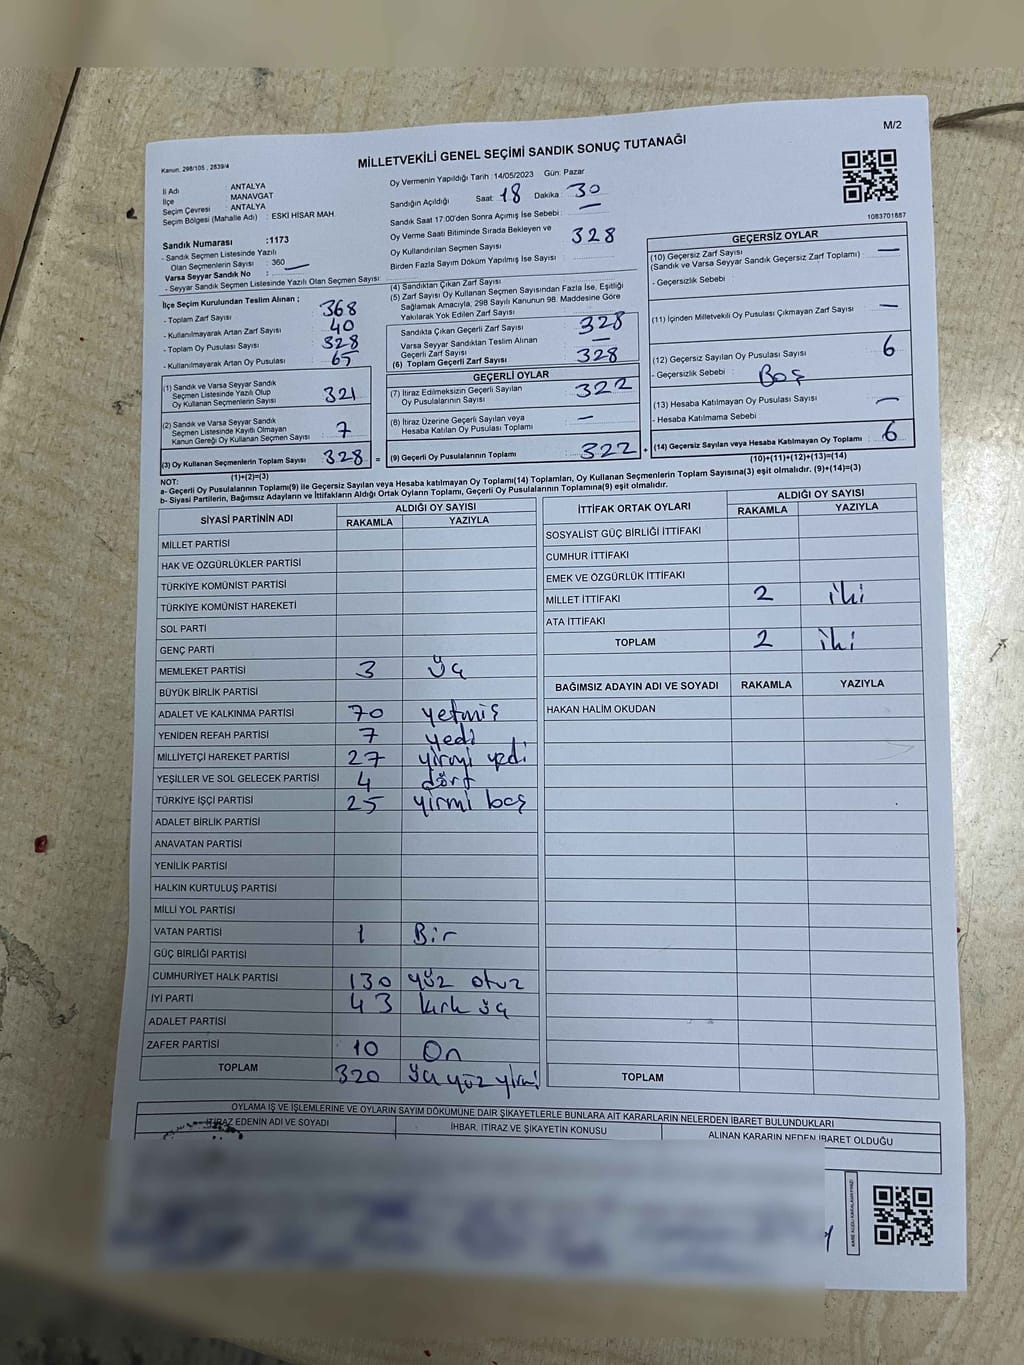 M/2
Kanun: 298/105 , 2839/4
MİLLETVEKİLİ GENEL SEÇİMİ SANDIK SONUÇ TUTANAĞI
İl Adı : ANTALYA
İlçe : MANAVGAT
Seçim Çevresi : ANTALYA
Seçim Bölgesi (Mahalle Adı) : ESKİ HİSAR MAH.
Sandık Numarası :1173
- Sandık Seçmen Listesinde Yazılı
Olan Seçmenlerin Sayısı : 360
Varsa Seyyar Sandık No :
- Seyyar Sandık Seçmen Listesinde Yazılı Olan Seçmen Sayısı:
Oy Vermenin Yapıldığı Tarih :14/05/2023 Gün: Pazar
Sandığın Açıldığı Saat: 18 Dakika: 30
Sandık Saat 17:00'den Sonra Açımış İse Sebebi: —
Oy Verme Saati Bitiminde Sırada Bekleyen ve
Oy Kullandırılan Seçmen Sayısı : 328
Birden Fazla Sayım Döküm Yapılmış İse Sayısı :
1083701887
İlçe Seçim Kurulundan Teslim Alınan ;
- Toplam Zarf Sayısı : 368
- Kullanılmayarak Artan Zarf Sayısı : 40
- Toplam Oy Pusulası Sayısı : 328
- Kullanılmayarak Artan Oy Pusulası : 65
(1) Sandık ve Varsa Seyyar Sandık
Seçmen Listesinde Yazılı Olup
Oy Kullanan Seçmenlerin Sayısı : 321
(2) Sandık ve Varsa Seyyar Sandık
Seçmen Listesinde Kayıtlı Olmayan
Kanun Gereği Oy Kullanan Seçmen Sayısı : 7
(3) Oy Kullanan Seçmenlerin Toplam Sayısı : 328 =
(1)+(2)=(3)
(4) Sandıktan Çıkan Zarf Sayısı
(5) Zarf Sayısı Oy Kullanan Seçmen Sayısından Fazla İse, Eşitliği
Sağlamak Amacıyla, 298 Sayılı Kanunun 98. Maddesine Göre
Yakılarak Yok Edilen Zarf Sayısı
Sandıkta Çıkan Geçerli Zarf Sayısı : 328
Varsa Seyyar Sandıktan Teslim Alınan
Geçerli Zarf Sayısı : —
(6) Toplam Geçerli Zarf Sayısı : 328
GEÇERLİ OYLAR
(7) İtiraz Edilmeksizin Geçerli Sayılan
Oy Pusulalarının Sayısı : 322
(8) İtiraz Üzerine Geçerli Sayılan veya
Hesaba Katılan Oy Pusulası Toplamı : —
(9) Geçerli Oy Pusulalarının Toplamı : 322 +
GEÇERSİZ OYLAR
(10) Geçersiz Zarf Sayısı : —
(Sandık ve Varsa Seyyar Sandık Geçersiz Zarf Toplamı)
- Geçersizlik Sebebi :
(11) İçinden Milletvekili Oy Pusulası Çıkmayan Zarf Sayısı : —
(12) Geçersiz Sayılan Oy Pusulası Sayısı : 6
- Geçersizlik Sebebi : Boş
(13) Hesaba Katılmayan Oy Pusulası Sayısı : —
- Hesaba Katılmama Sebebi :
(14) Geçersiz Sayılan veya Hesaba Katılmayan Oy Toplamı : 6
(10)+(11)+(12)+(13)=(14)
NOT:
a- Geçerli Oy Pusulalarının Toplamı(9) ile Geçersiz Sayılan veya Hesaba katılmayan Oy Toplamı(14) Toplamları, Oy Kullanan Seçmenlerin Toplam Sayısına(3) eşit olmalıdır. (9)+(14)=(3)
b- Siyasi Partilerin, Bağımsız Adayların ve İttifakların Aldığı Ortak Oyların Toplamı, Geçerli Oy Pusulalarının Toplamına(9) eşit olmalıdır.
SİYASİ PARTİNİN ADI ALDIĞI OY SAYISI
RAKAMLA YAZIYLA
MİLLET PARTİSİ
HAK VE ÖZGÜRLÜKLER PARTİSİ
TÜRKİYE KOMÜNİST PARTİSİ
TÜRKİYE KOMÜNİST HAREKETİ
SOL PARTİ
GENÇ PARTİ
MEMLEKET PARTİSİ 3 üç
BÜYÜK BİRLİK PARTİSİ
ADALET VE KALKINMA PARTİSİ 70 yetmiş
YENİDEN REFAH PARTİSİ 7 yedi
MİLLİYETÇİ HAREKET PARTİSİ 27 yirmi yedi
YEŞİLLER VE SOL GELECEK PARTİSİ 4 dört
TÜRKİYE İŞÇİ PARTİSİ 25 yirmi beş
ADALET BİRLİK PARTİSİ
ANAVATAN PARTİSİ
YENİLİK PARTİSİ
HALKIN KURTULUŞ PARTİSİ
MİLLİ YOL PARTİSİ
VATAN PARTİSİ 1 Bir
GÜÇ BİRLİĞİ PARTİSİ
CUMHURİYET HALK PARTİSİ 130 yüz otuz
İYİ PARTİ 43 kırk üç
ADALET PARTİSİ
ZAFER PARTİSİ 10 On
TOPLAM 320 üç yüz yirmi
İTTİFAK ORTAK OYLARI ALDIĞI OY SAYISI
RAKAMLA YAZIYLA
SOSYALİST GÜÇ BİRLİĞİ İTTİFAKI
CUMHUR İTTİFAKI
EMEK VE ÖZGÜRLÜK İTTİFAKI
MİLLET İTTİFAKI 2 iki
ATA İTTİFAKI
TOPLAM 2 iki
BAĞIMSIZ ADAYIN ADI VE SOYADI RAKAMLA YAZIYLA
HAKAN HALİM OKUDAN
TOPLAM
OYLAMA İŞ VE İŞLEMLERİNE VE OYLARIN SAYIM DÖKÜMÜNE DAİR ŞİKAYETLERLE BUNLARA AİT KARARLARIN NELERDEN İBARET BULUNDUKLARI
İTİRAZ EDENİN ADI VE SOYADI İHBAR, İTİRAZ VE ŞİKAYETİN KONUSU ALINAN KARARIN NEDEN İBARET OLDUĞU